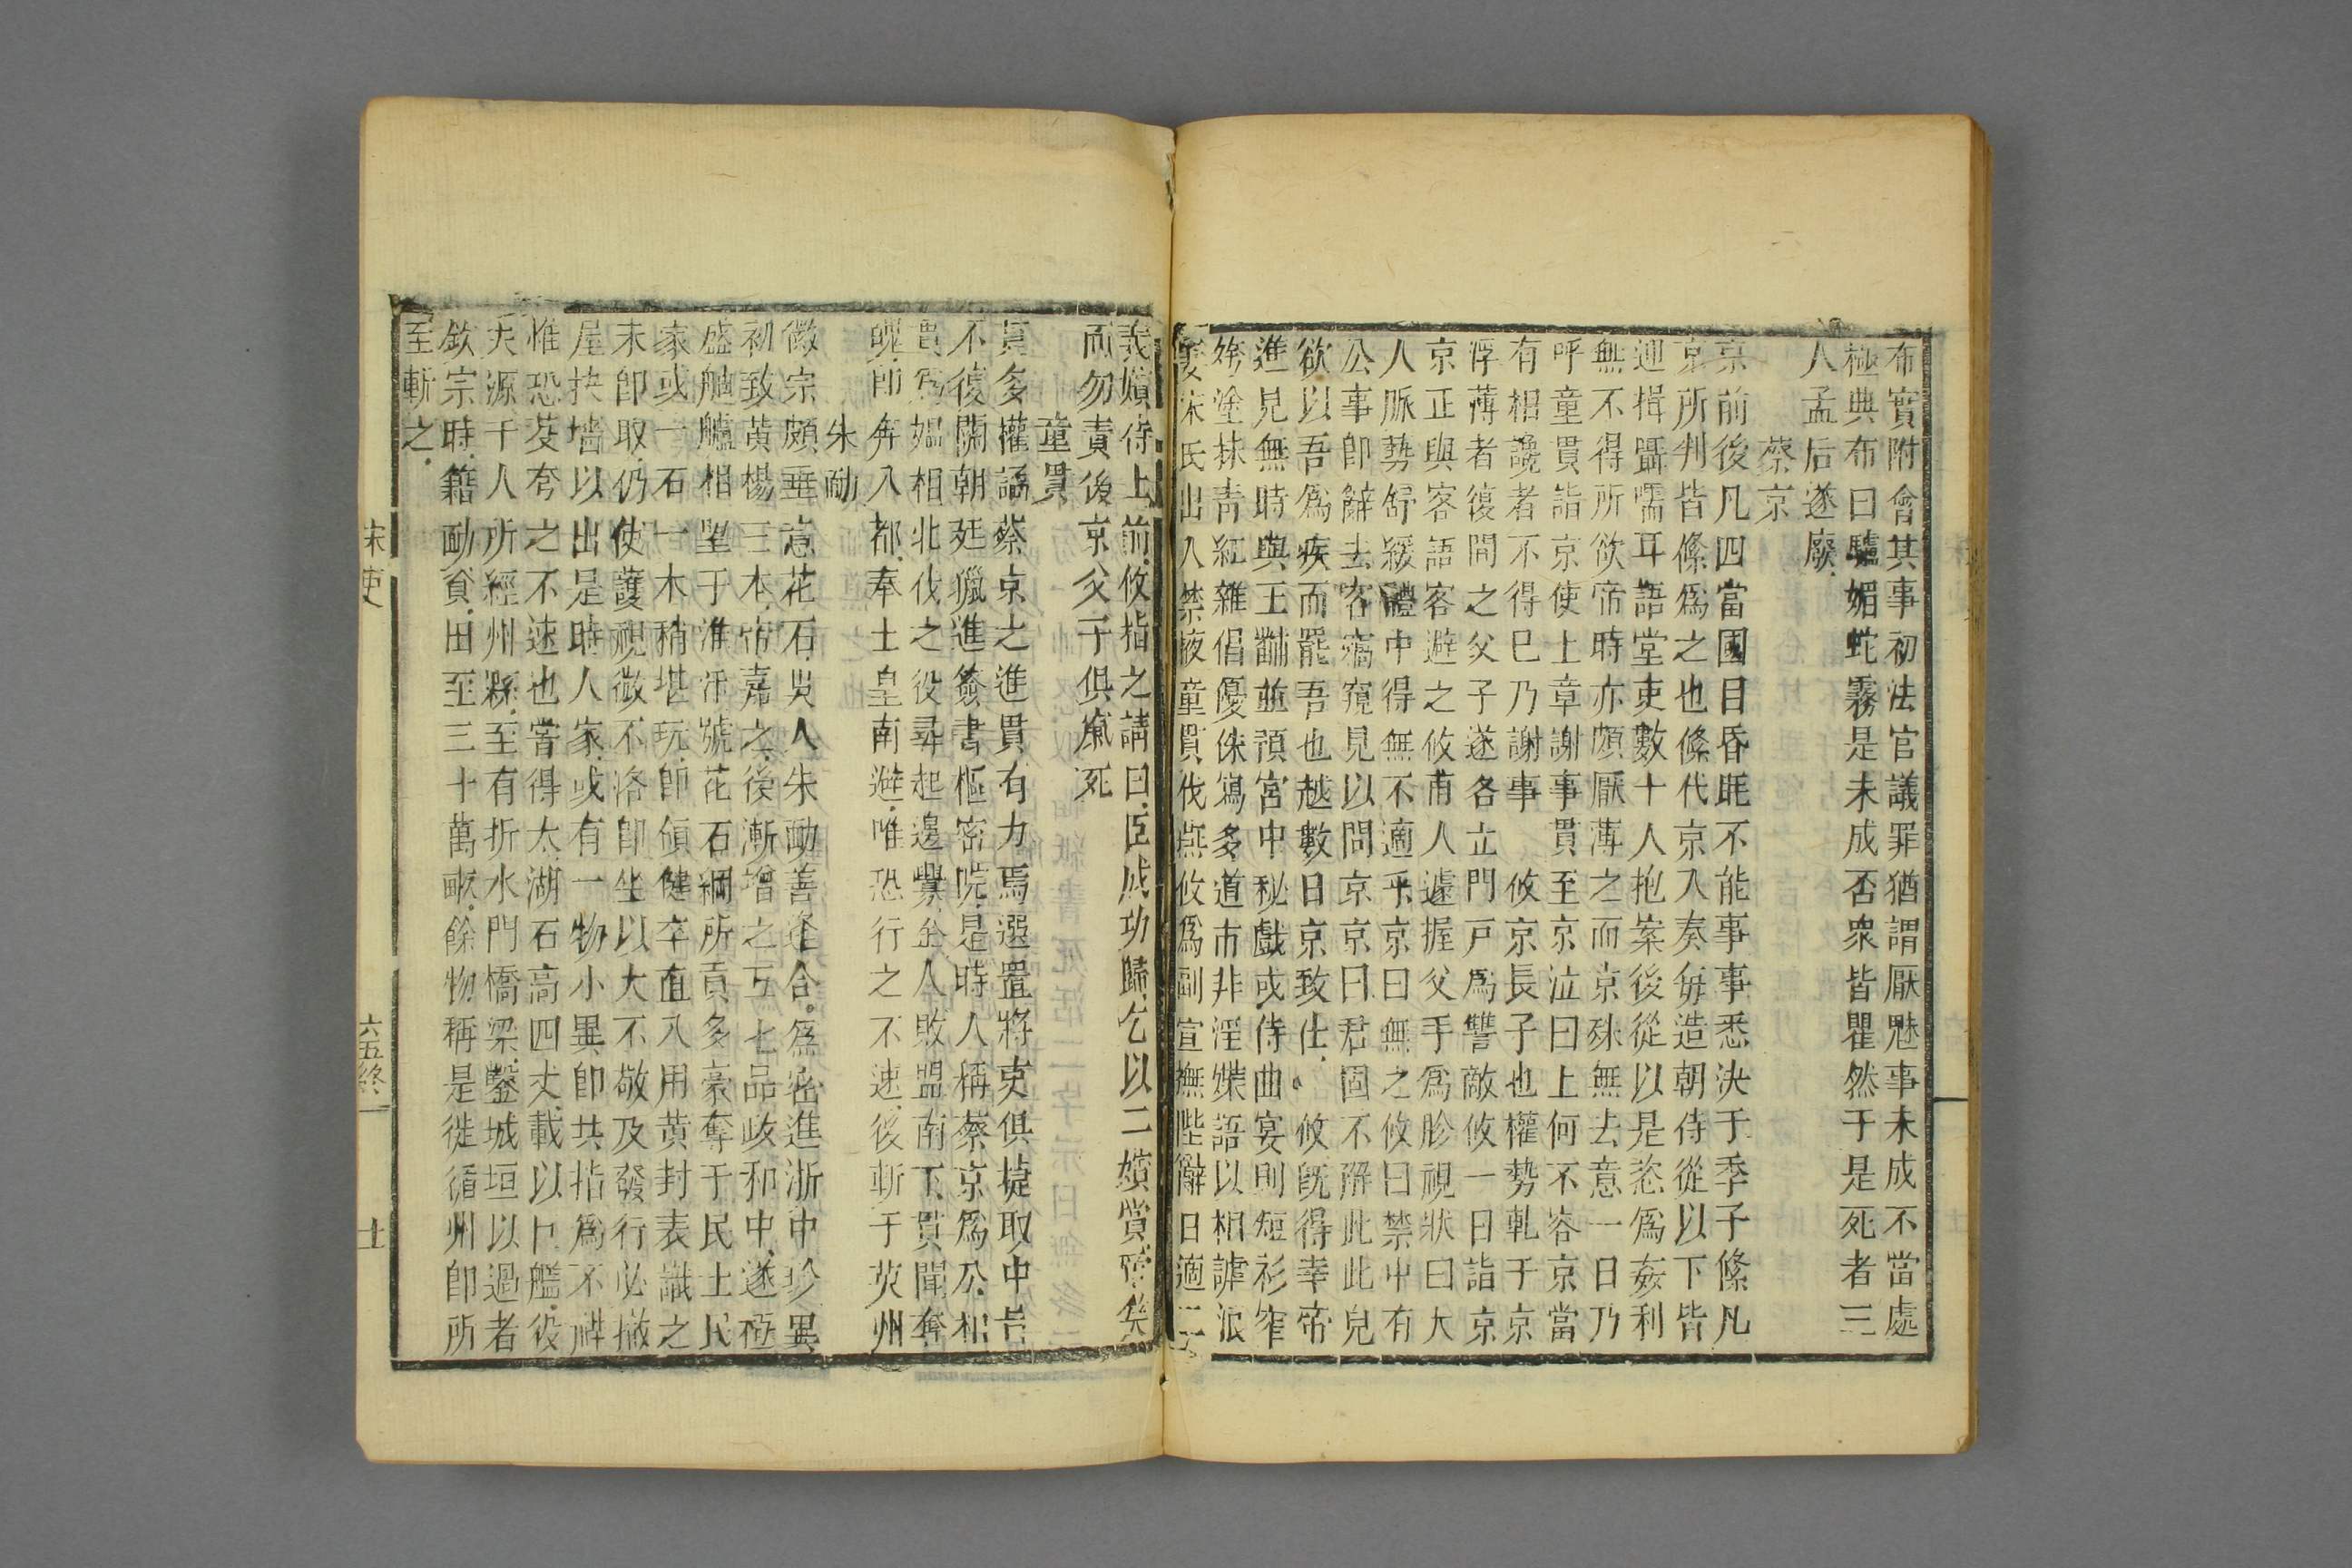 布實附會其事初法官議罪猶謂厭魅事未成不當處
極典布曰驢媚蛇霧是未成否衆皆瞿然于是死者三
人孟后遂廢
蔡京
京前後凡四當國目昏眊不能事事悉決于季子絛凡
京所判皆絛爲之也絛代京入奏每造朝侍從以下皆
迎揖聶嚅耳語堂吏數十人抱案後從以是恣爲姦利
無不得所欲帝時亦頗厭薄之而京殊無去意一日乃
呼童貫詣京使上章謝事貫至京泣曰上何不容京當
有相讒者不得巳乃謝事 攸京長子也權勢軋于京
浮薄者復間之父子遂各立門戸爲讐敵攸一日詣京
京正與客語客避之攸甫人遽握父手爲胗視狀曰大
人脈勢舒緩體中得無不適乎京曰無之攸曰禁中有
公事卽辭去客竊窺見以問京京曰君固不解此此兒
欲以吾爲疾而罷吾也越數日京致仕 攸旣得幸帝
進見無時與王黼並預宮中秘戲或侍曲宴則短衫窄
袴塗抹青紅雜倡優侏寫多道市井淫媟語以相謔浪
妻宋氏出入禁掖童貫伐燕攸爲副宣撫陛辭日適二
美嬪侍上前攸指之請曰臣成功歸乞以二嬪賞臣矣
而勿責後京父子俱竄死
童貫
貫多權譎蔡京之進貫有力焉選置將吏俱捷取中旨
不復關朝廷獵進簽書樞密院是時人稱蔡京爲公相
貫爲媼相北伐之役尋起邊釁金人敗盟南下貫聞奪
魄卽奔入都奉土皇南避唯恐行之不速後斬于英州
朱勔
徽宗頗垂意花石吳人朱勔善逢合爲密進浙中珍異
初致黃楊三本帝嘉之後漸增之五七品政和中遂極
盛舳艫相望于淮汴號花石綱所貢多豪奪于民士民
家或一石一木稍堪玩卽領健卒直入用黃封表識之
未卽取仍使護視微不洛卽坐以大不敬及發行必撤
屋抉墻以出是時人家或有一物小異卽共指爲不祥
惟恐芟夸之不速也嘗得太湖石高四丈載以巨艦役
夫源千人所經州縣至有折水門橋梁鑿城垣以過者
欽宗時籍勔貲田至三十萬畝餘物稱是徙循州卽所
至斬之
宋史
六五終
十